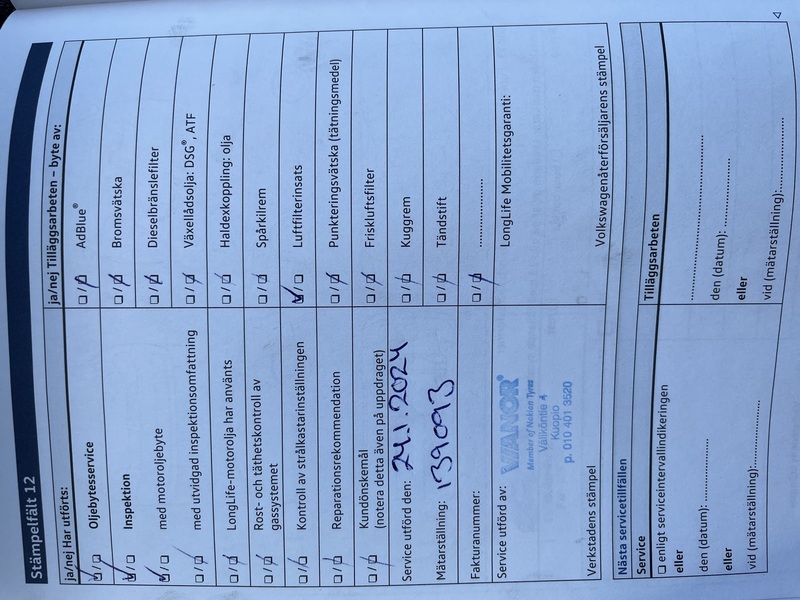 Stämpelfält 12
ja/nej Har utförts:
☑/☐ Oljebytesservice
☑/☐ Inspektion
☑/☐ med motoroljebyte
☐/☑ med utvidgad inspektionsomfattning
☐/☑ LongLife-motorolja har använts
☐/☑ Rost- och täthetskontroll av
gassystemet
☐/☑ Kontroll av strålkastarinställningen
☐/☑ Reparationsrekommendation
☐/☑ Kundönskemål
(notera detta även på uppdraget)
Service utförd den: 24.1.2024
Mätarställning: 139093
Fakturanummer:
Service utförd av:
WIANOR
Member of Nokian Tyres
Väliköntie 4
Kuopio
p. 010 401 3520
Verkstadens stämpel
ja/nej Tilläggsarbeten – byte av:
☐/☑ AdBlue®
☐/☑ Bromsvätska
☐/☑ Dieselbränslefilter
☐/☑ Växellådsolja: DSG®, ATF
☐/☑ Haldexkoppling: olja
☐/☑ Spårkilrem
☑/☐ Luftfilterinsats
☐/☑ Punkteringsvätska (tätningsmedel)
☐/☑ Friskluftsfilter
☐/☑ Kuggrem
☐/☑ Tändstift
☐/☑ ....................
LongLife Mobilitetsgaranti:
Volkswagenåterförsäljarens stämpel
Nästa servicetillfällen
Service
☐ enligt serviceintervallindikeringen
eller
den (datum): ....................
eller
vid (mätarställning): ....................
Tilläggsarbeten
....................
den (datum): ....................
eller
vid (mätarställning): ....................